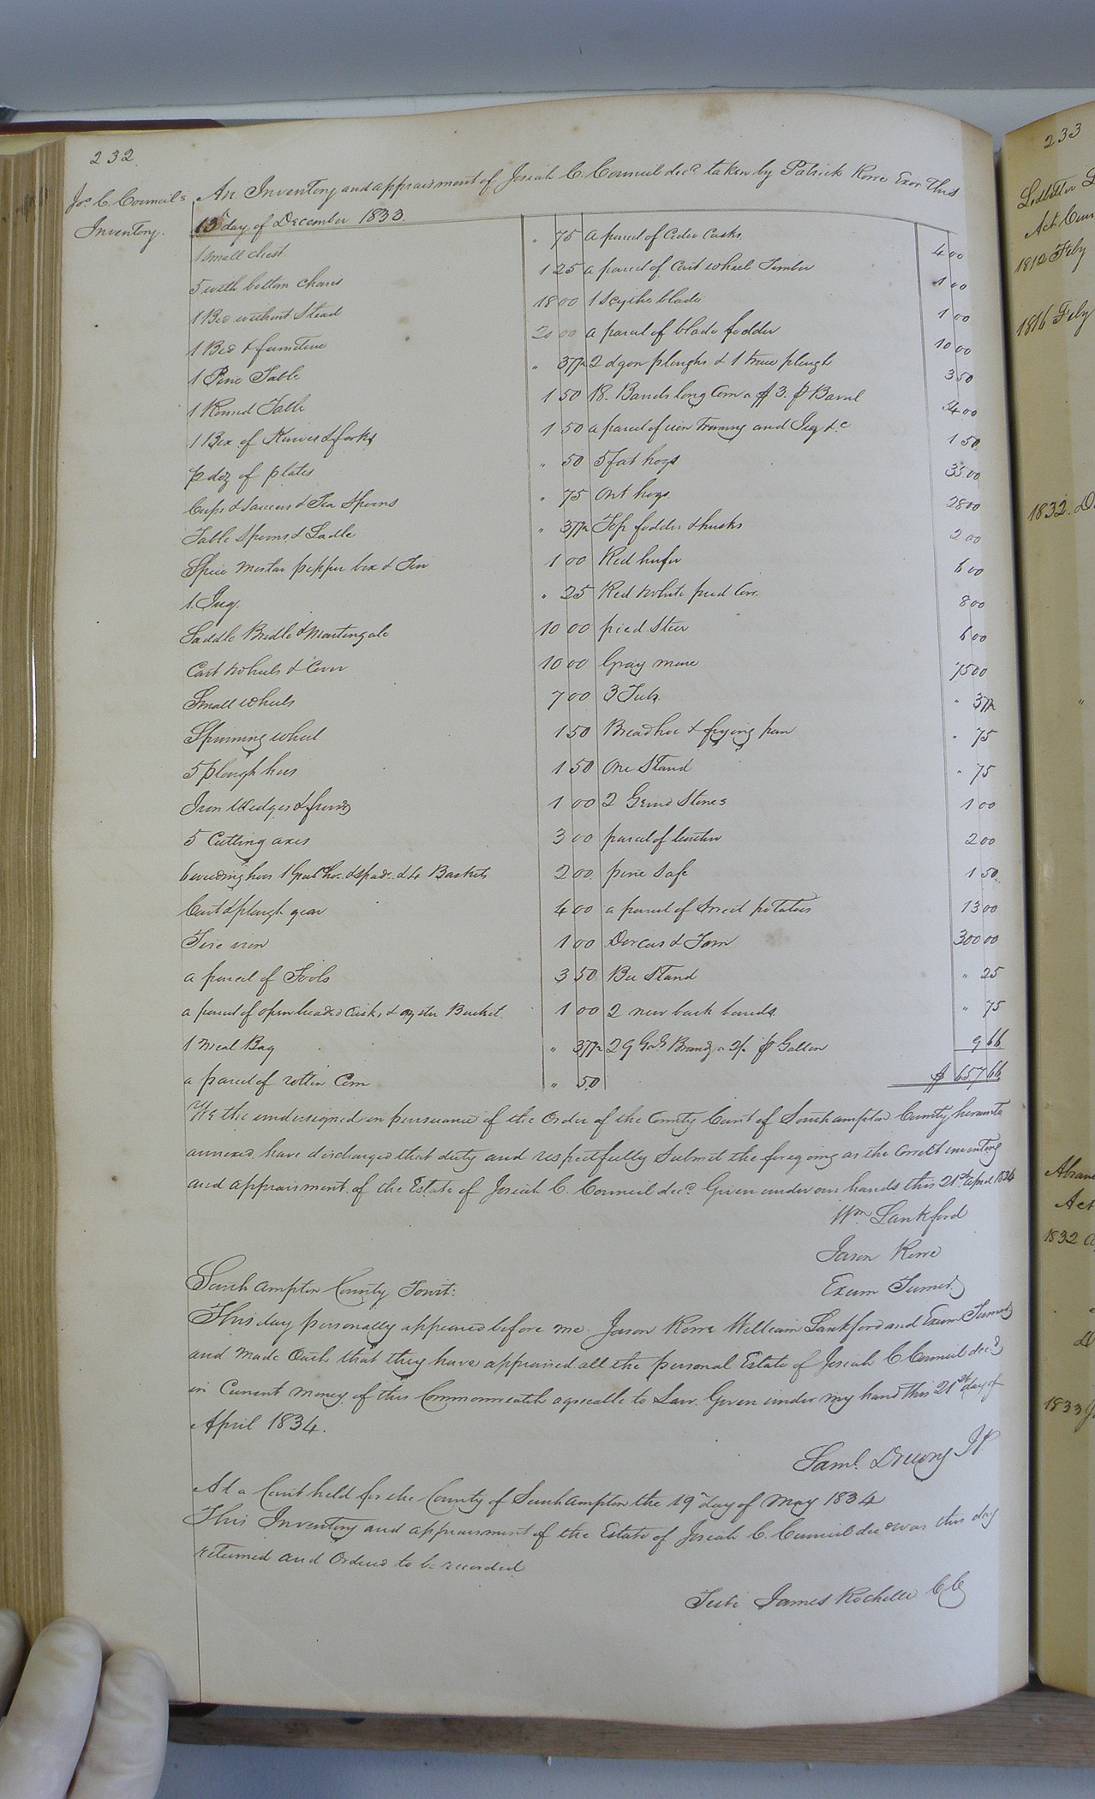 232
Jos. C. Council's
Inventory.
An Inventory and appraisement of Josiah C. Council decd. taken by Patrick Rowe Exor. This
13 day of December 1833
1 small chest " 75 a parcel of Cider Casks 4 00
5 with bottom chairs 1 25 a parcel of Cart wheel Timber 1 00
1 Bed without Stead 18 00 1 Scythe blade 1 00
1 Bed & furniture 20 00 a parcel of blade fodder 10 00
1 Pine Table " 37½ 2 dgon ploughs & 1 trace plough 3 50
1 Round Table 1 50 18. Barrels long Corn a $3. ⅌ Barrel 54 00
1 Box of Knives & forks 1 50 a parcel of iron Traming and Jug &c 1 50
½ doz of plates " 50 5 fat hogs 35 00
Cups & Saucers & Tea Spoons " 75 Out hogs 28 00
Table Spoons & Ladle " 37½ Top fodder & husks 2 00
Spice Mortar pepper box & Tin 1 00 Red heifer 6 00
1. Jug. " 25 Red & white pied Cow. 8 00
Saddle Bridle & Martingale 10 00 pied Steer 6 00
Cart wheels & Cover 10 00 Gray mare 75 00
Small wheels 7 00 3 Tubs " 37½
Spinning wheel 1 50 Bread hoe & frying pan " 75
5 plough hoes 1 50 One Stand " 75
Iron Wedges & frow 1 00 2 Grind Stones 1 00
5 Cutting axes 3 00 parcel of 2 00
6 weeding hoes 1 Grub hoe & spade & 4 Baskets 2 00 pine Safe 1 50
Cart & plough gear 4 00 a parcel of Sweet potatoes 13 00
Fire iron 1 00 Dorcas & Tom 300 00
a parcel of Tools 3 50 Bee Stand " 25
a parcel of open headed Casks & oyster Bucket 1 00 2 new back bands " 75
1 Meal Bag " 37½ 29 Gals Brandy a 2/. ⅌ Gallon 9 66
a parcel of rotten Corn " 50 $ 657 66
We the undersigned in pursuance of the Order of the County Court of Southampton County hereunto
annexed have discharged that duty and respectfully Submit the foregoing as the correct inventory
and appraisment of the Estate of Josiah C. Council decd. Given under our hands this 21st April 1834
Wm. Lankford
Jason Rowe
Exum Turner
Southampton County Towit:
This day personally appeared before me Jason Rowe William Lankford and Exum Turner
and made Oath that they have appraised all the personal Estate of Josiah C Council decd.
in Current money of this Commonwealth agreeable to Law. Given under my hand this 21st day of
April 1834.
Saml. Drewry J P
At a Court held for the County of Southampton the 19th day of May 1834
This Inventory and appraisment of the Estate of Josiah C. Council decd was this day
returned and Ordered to be recorded
Teste James Rochelle CC
233
Ledbetter
Act. Curr
1812 Feby
1816 Feby
1832. D
Act
1832
1833